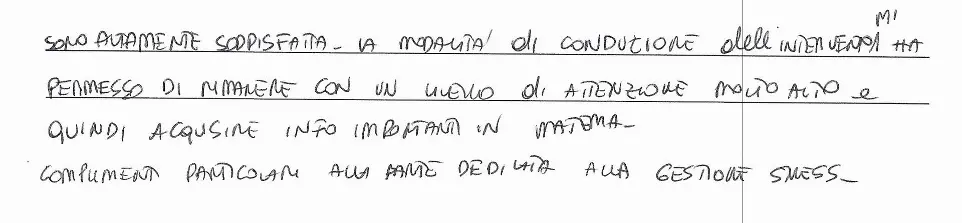 SONO ALTAMENTE SODDISFATTA - LA MODALITA' di CONDUZIONE dell'INTERVENTO MI HA
PERMESSO DI RIMANERE CON UN LIVELLO di ATTENZIONE MOLTO ALTO e
QUINDI ACQUSIRE INFO IMPORTANTI IN MATERIA -
COMPLIMENTI PARTICOLARI ALLA PARTE DEDICATA ALLA GESTIONE STRESS -